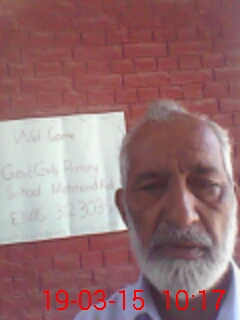 Wel Come
Govt Girls Primary
School Mehmood
EMIS 32303
19-03-15 10:17